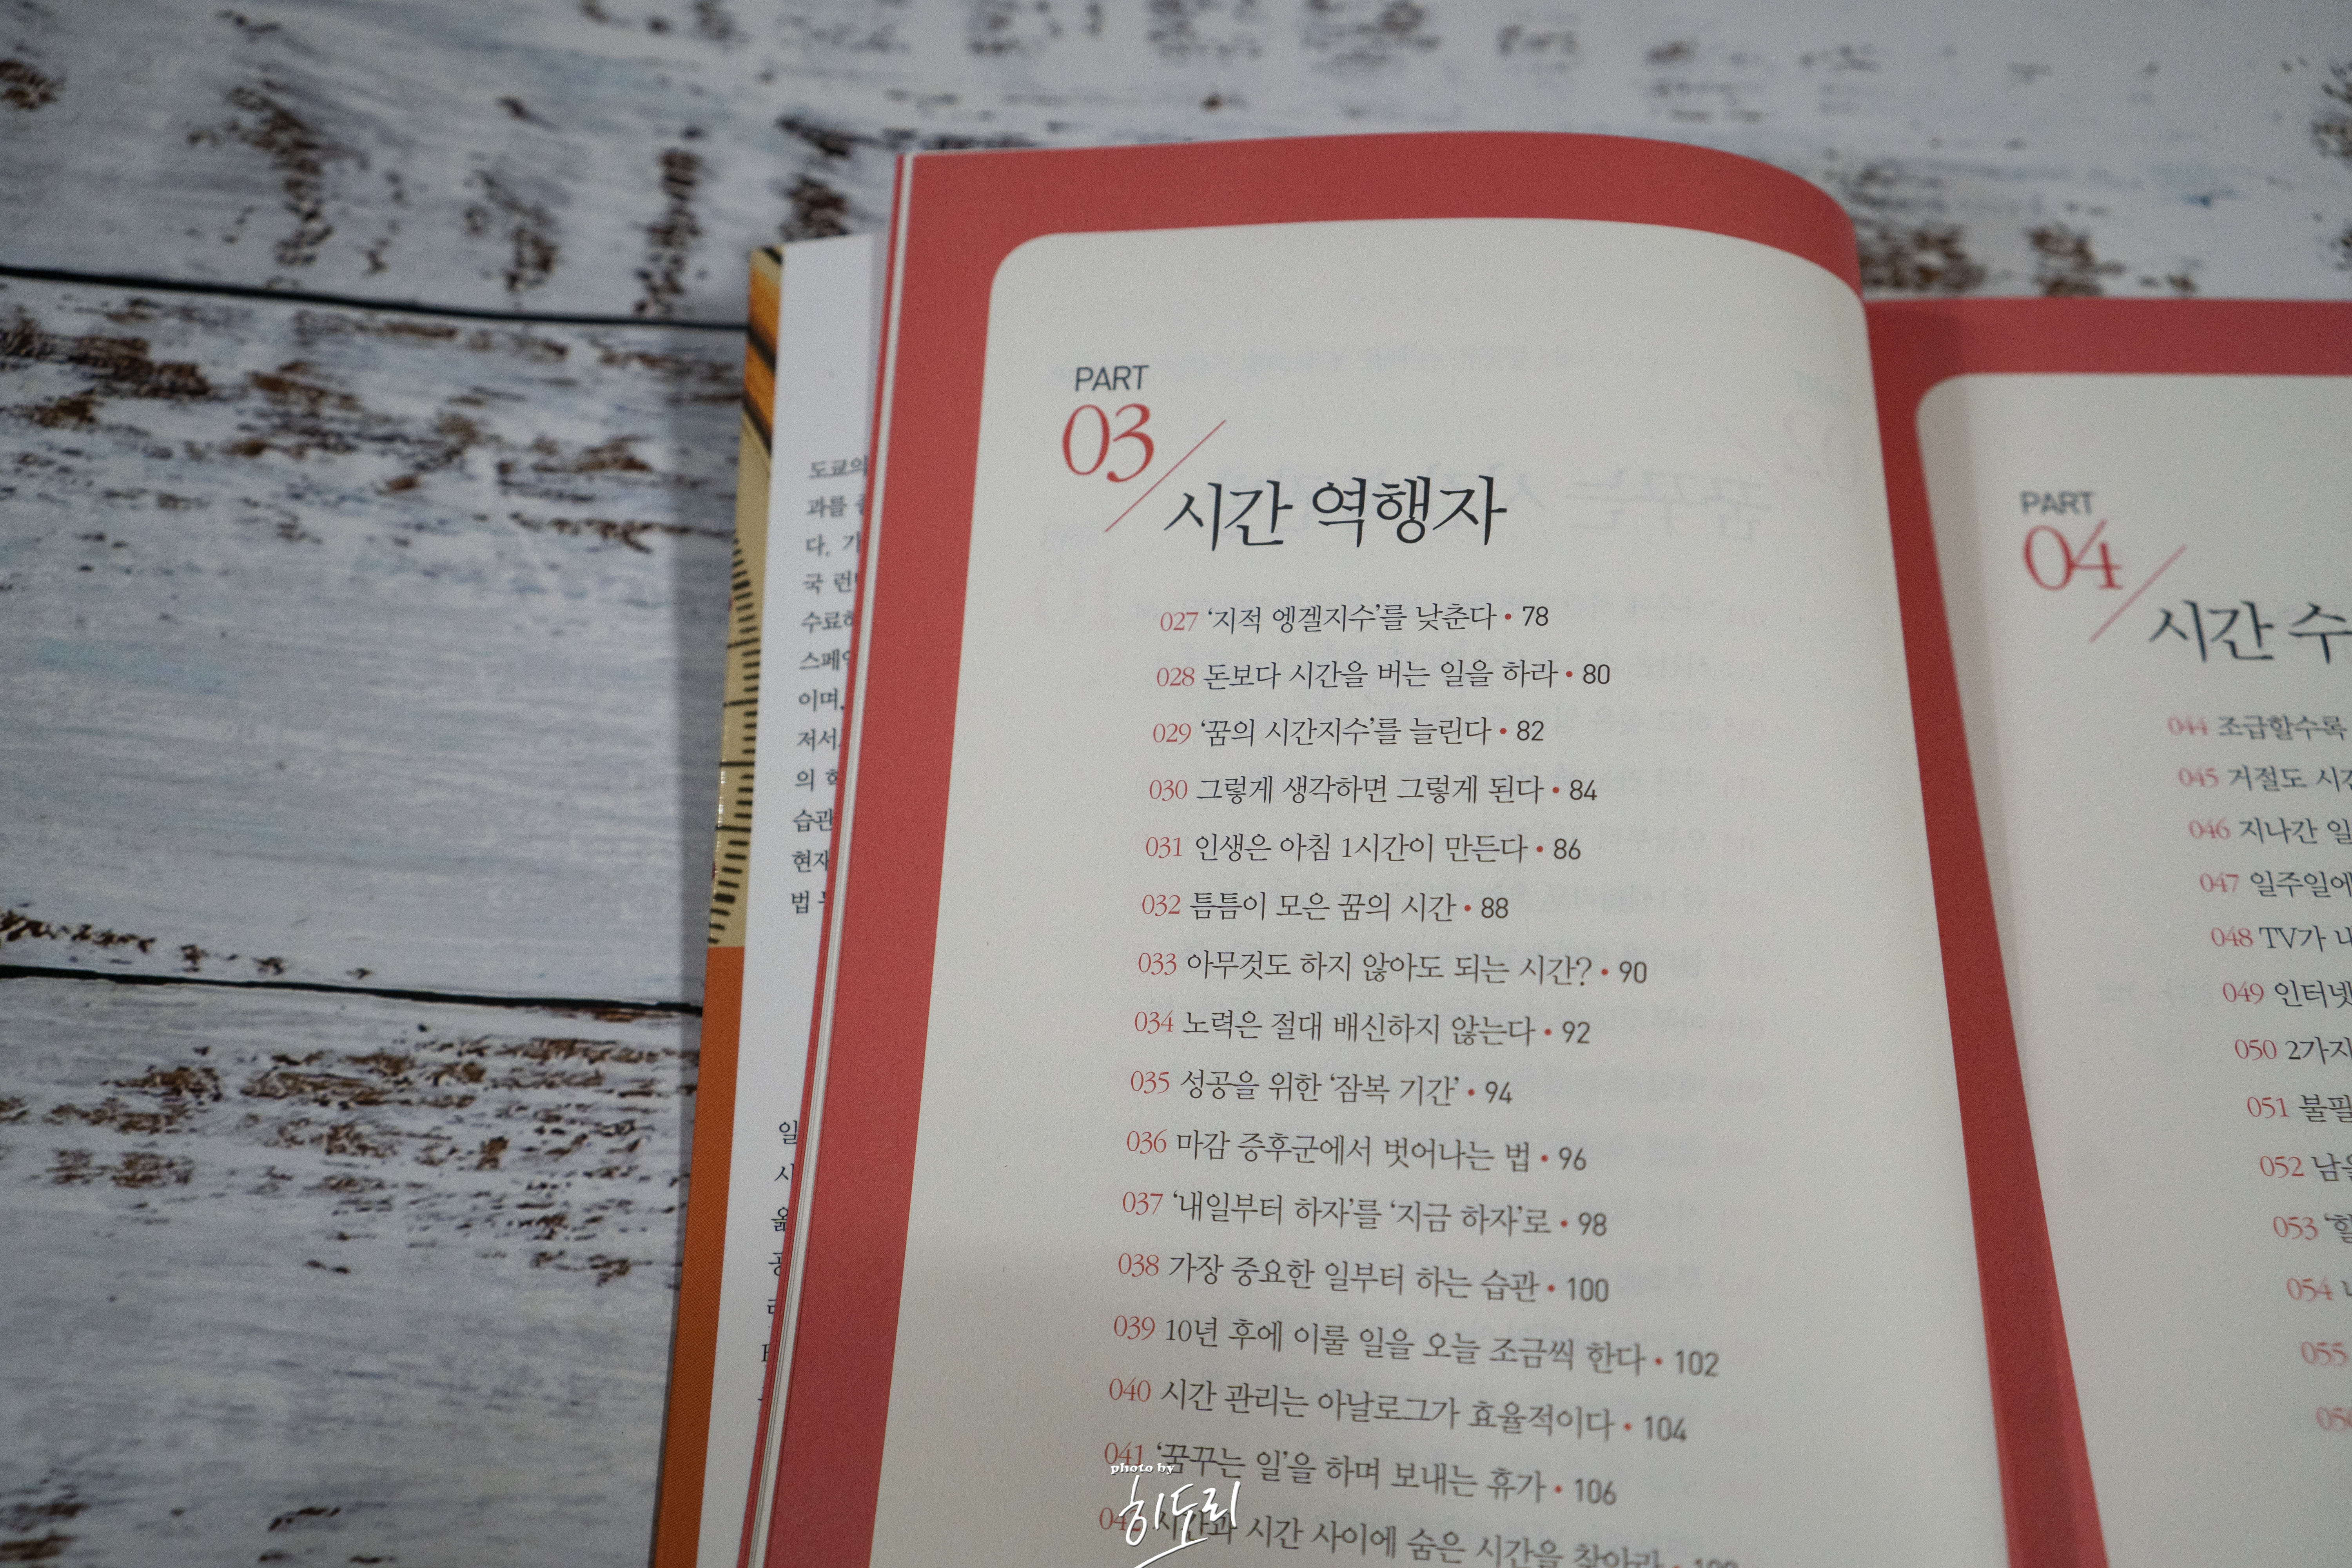 도쿄의
과를
다. 가
국 런던
수료하
스페인
이며,
저서
의
습관
현재
법
일
사
옮
공
PART
03
시간 역행자
027 ‘지적 엥겔지수’를 낮춘다 • 78
028 돈보다 시간을 버는 일을 하라 • 80
029 ‘꿈의 시간지수’를 늘린다 • 82
030 그렇게 생각하면 그렇게 된다 • 84
031 인생은 아침 1시간이 만든다 • 86
032 틈틈이 모은 꿈의 시간 • 88
033 아무것도 하지 않아도 되는 시간? • 90
034 노력은 절대 배신하지 않는다 • 92
035 성공을 위한 ‘잠복 기간’ • 94
036 마감 증후군에서 벗어나는 법 • 96
037 ‘내일부터 하자’를 ‘지금 하자’로 • 98
038 가장 중요한 일부터 하는 습관 • 100
039 10년 후에 이룰 일을 오늘 조금씩 한다 • 102
040 시간 관리는 아날로그가 효율적이다 • 104
041 ‘꿈꾸는 일’을 하며 보내는 휴가 • 106
시간과 시간 사이에 숨은 시간을 찾아라 •
photo by
히도리
PART
04
시간 수
044 조급할수록
045 거절도 시간
046 지나간 일
047 일주일에
048 TV가
049 인터넷
050 2가지
051 불필
052 남을
053 ‘할
054
055